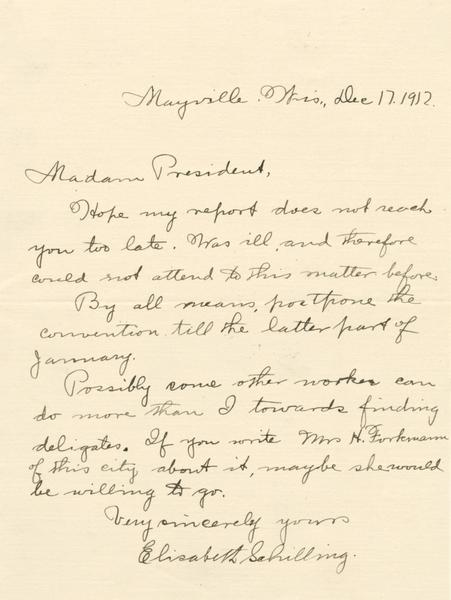 Mayville. Wis., Dec 17. 1912.
Madam President,
Hope my report does not reach
you too late. Was ill, and therefore
could not attend to this matter before.
By all means, postpone the
convention till the latter part of
January.
Possibly some other worker can
do more than I towards finding
deligates. If you write Mrs H. Forkmann
of this city about it, maybe she would
be willing to go.
Very sincerely yours
Elisabeth Schilling.